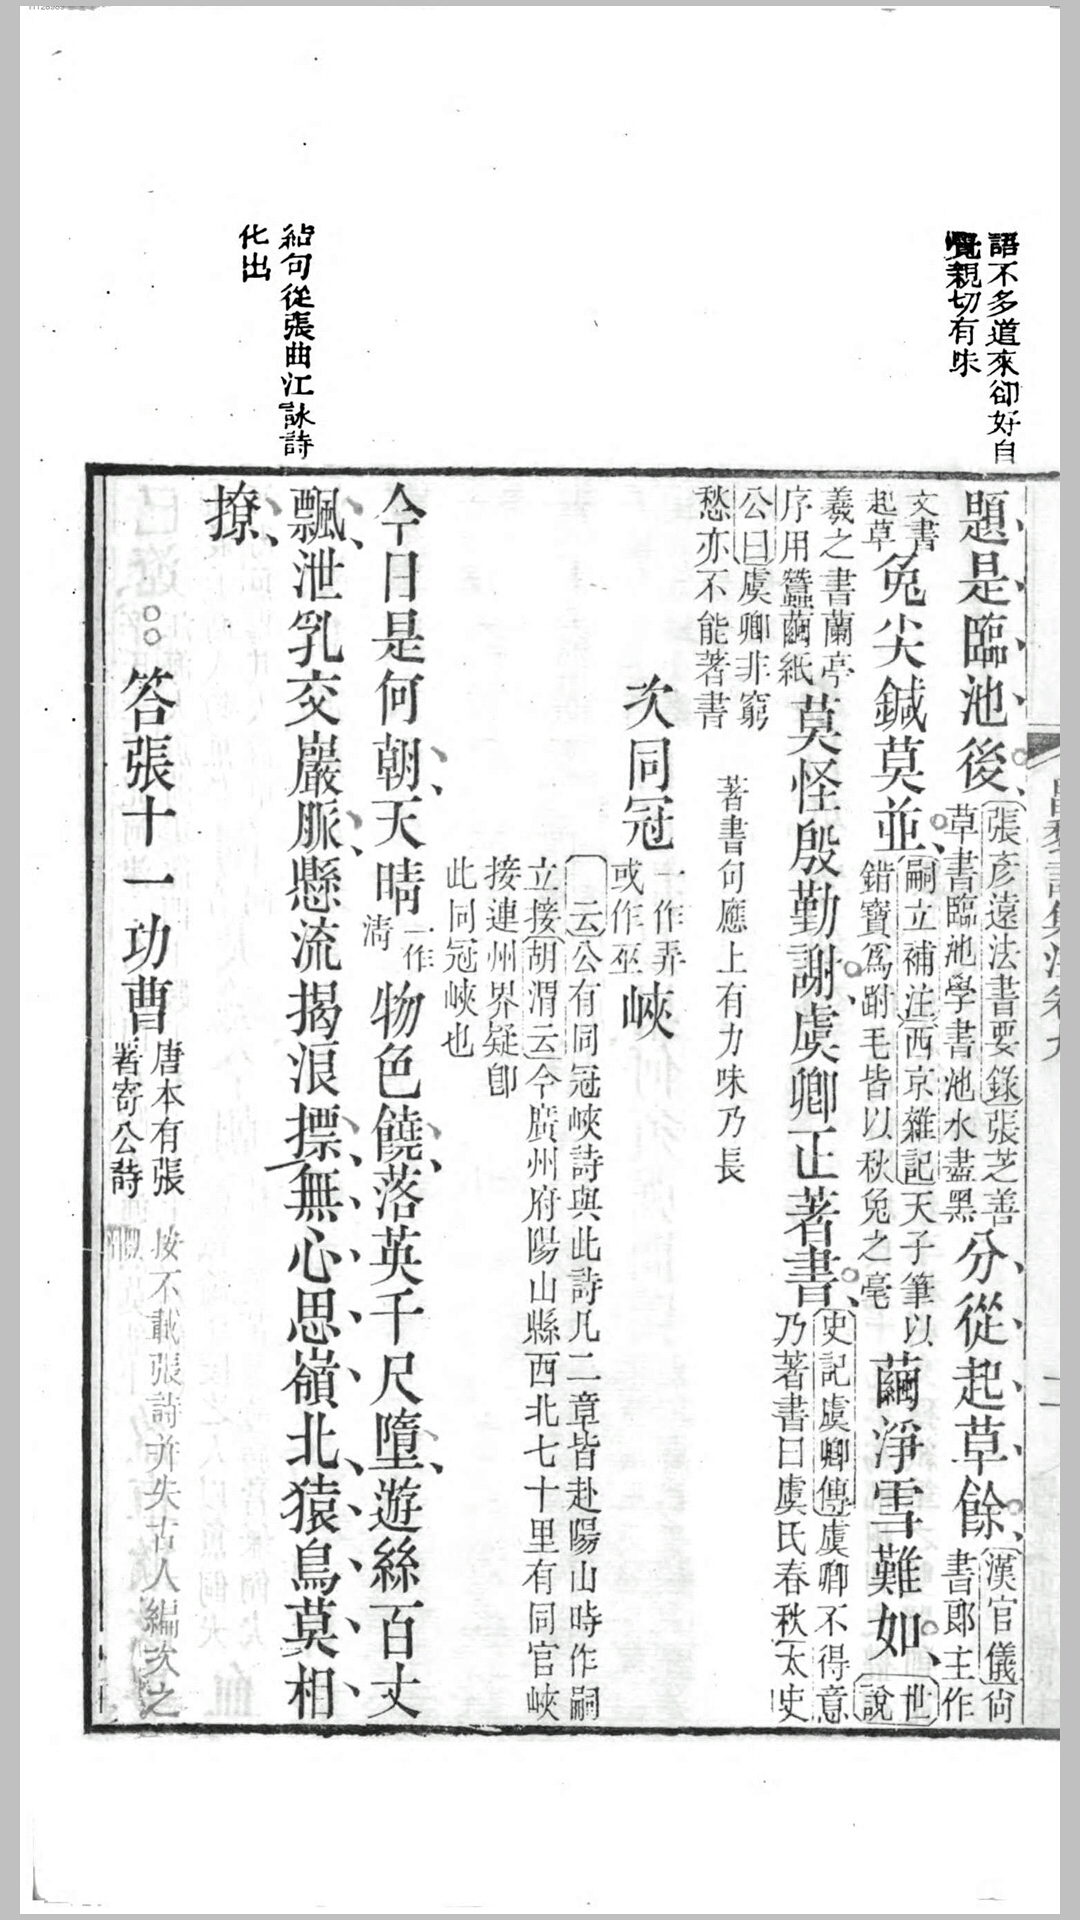 語不多道來卻好自
覺親切有味
題是臨池後張彥遠法書要錄張芝善草書臨池學書池水盡黑分從起草餘漢官儀尚書郎主作
文書起草兔尖鍼莫並嗣立補注西京雜記天子筆以錯寶爲跗毛皆以秋兔之毫繭淨雪難如世說
羲之書蘭亭序用蠶繭紙莫怪殷勤謝虞卿正著書史記虞卿傳虞卿不得意乃著書曰虞氏春秋太史
公曰虞卿非窮愁亦不能著書
著書句應上有力味乃長
次同冠一作弄或作巫峽
云公有同冠峽詩與此詩凡二章皆赴陽山時作嗣
立接胡渭云今廣州府陽山縣西北七十里有同官峽
接連州界疑卽
此同冠峽也
結句從張曲江詠詩
化出
今日是何朝天晴一作清物色饒落英千尺墮遊絲百丈
飄泄乳交巖脈懸流揭浪摽無心思嶺北猿鳥莫相
撩
答張十一功曹唐本有張署寄公詩按不載張詩亦失古人編次之